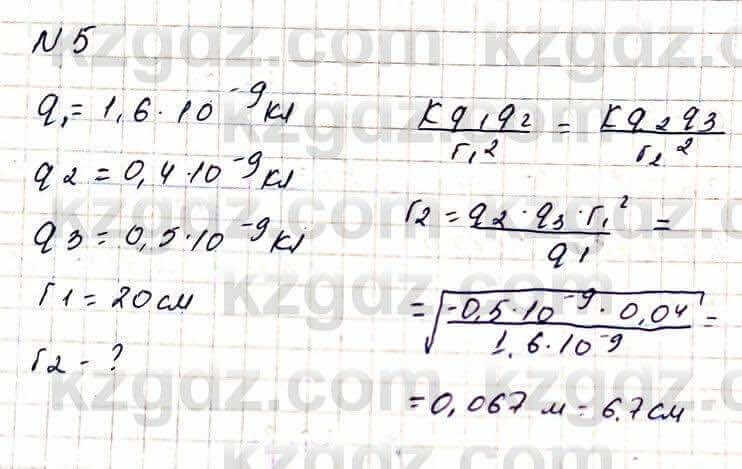 N 5
q₁ = 1,6 · 10⁻⁹ кл
q2 = 0,4 · 10⁻⁹ кл
q3 = 0,5 · 10⁻⁹ кл
r1 = 20 см
r2 - ?
Kq₁q₂ / r₁² = Kq₂q₃ / r₂²
r2 = q₂ · q₃ · r₁² / q1 =
= √(-0,5 · 10⁻⁹ · 0,04 / 1,6 · 10⁻⁹) =
= 0,067 м = 6,7 см
kzgdz.com